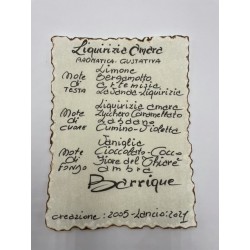 Liquirizia Amara
AROMATICA-GUSTATIVA
Limone
Note Bergamotto
Di Artemisia
TESTA Lavanda-Liquirizia
Liquirizia amara
Note Zucchero Caramellato
Di Labdano
CUORE Cumino-Violetta
Vaniglia
Note Cioccolato-Cocco
Di Fiore del
FONDO ambra
Barrique
creazione:2005-lancio:2021